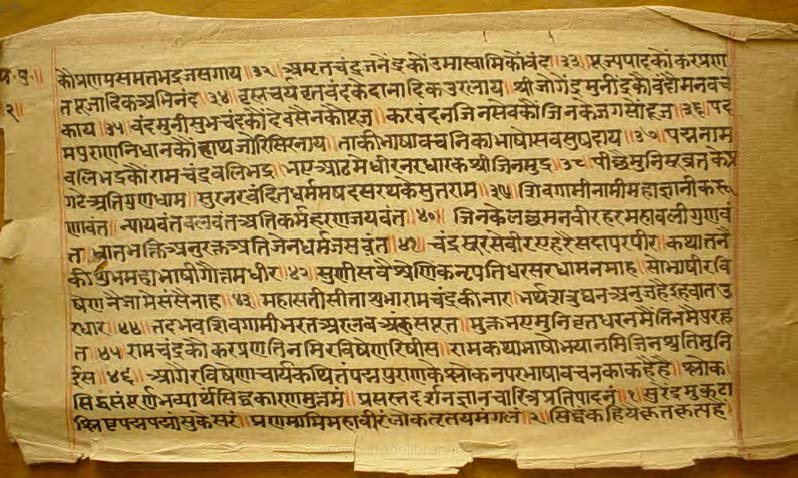 प. पु. ॥
२
कौ प्रणम समतभद्र जसगाय ॥३२॥ अमृतचंद्र जनेंद्रकों उमास्वामिकों वंद ॥३३॥ पूज्यपादकों कर प्रण
त पूजादिक अभिनंद ॥३४॥ वृतवंदके दानादिक उरलाय ॥ श्री जोगेंद्र मुनींद्रकौ वंदौ मनवच
काय ॥३५॥ वंद मुनी सुभचंदकौं देवसैनकौ पूज ॥ करवंदन जिनसेवकौं जिनके जगसौं दूज ॥३६॥ पद
मपुराण निधानको हाथ जोरि सिरनाय ॥ ताकी भाषा वचनिका भाषो सब सुषदाय ॥३७॥ पद्मनाम
वलिभद्रकौ रामचंद्र वलिभद्र ॥ भए आठमे धीर नर धारक श्रीजिनमुद्र ॥३८॥ मुनिसुव्रतके
गटे अतिगुणधाम ॥ सुरनरवंदित धर्ममय दसरथके सुत राम ॥३९॥ शिवगामी नामी महाज्ञानी करू
णावंत ॥ न्यायवंत वलवंत अति कर्महरण जयवंत ॥४०॥ जिनके लछमन वीर हर महावली गुणवं
त ॥ भ्रातभक्ति अनुरक्त अति जैनधर्म जसवंत ॥४१॥ चंद्र सूरसे वीर ए हरै सदा परपीर ॥ कथा तनै
की शुभ महा भाषी गोतम धीर ॥४२॥ सुणी सवै श्रेणिक नृपति धर सरधा मनमाह ॥ सो भाषी रवि
षेणनै जामे संसै नाह ॥४३॥ महासती सीता शुभा रामचंदकी नार ॥ भर्थ शत्रुघन अनुज है इह वात उ
रधार ॥४४॥ तदभव शिवगामी भरत अर लव अंकुस पूत ॥ मुक्त भए मुनिवृत धर नमै तिनै पुरहू
त ॥४५॥ रामचंद्रकौ कर प्रणति नमि रविषेण रिषीस ॥ रामकथा भाषो नमि जिन श्रुति मुनि
ईस ॥४६॥ आगै रविषेणाचार्य कथितं पद्मपुराणके श्लोकनपर भाषा वचनका कहै है ॥ श्लोक
सिद्धं संपूर्णभव्यार्थं सिद्धेः कारणमुत्तमं ॥ प्रसस्तदर्शनज्ञानचारित्रप्रतिपादनं ॥१॥ सुरेंद्रमुकुटा
श्लिष्टपद्मपद्मांसुकेसरं ॥ प्रणमामि महावीरं लोकतृतयमंगलं ॥२॥